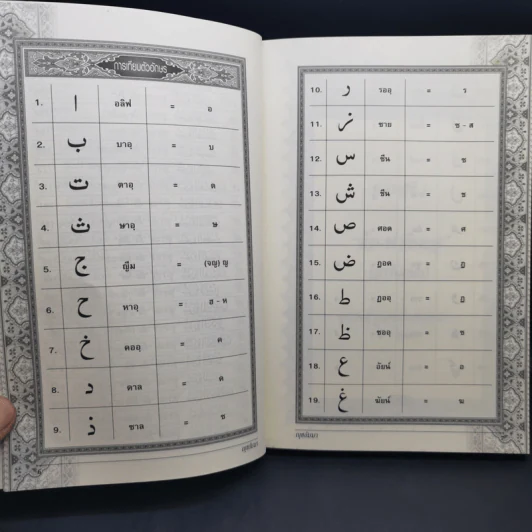 การเทียบตัวอักษร
1. ا อลิฟ = อ
2. ب บาอุ = บ
3. ت ตาอุ = ต
4. ث ษาอุ = ษ
5. ج ญีม = (จญ) ญ
6. ح หาอุ = ฮ - ห
7. خ คออุ = ค
8. د ดาล = ด
9. ذ ซาล = ซ
10. ر รออุ = ร
11. ز ซาย = ซ - ส
12. س ซีน = ซ
13. ش ชีน = ช
14. ص ศอด = ศ
15. ض ฎอด = ฎ
16. ط ฏออุ = ฏ
17. ظ ซออุ = ซ
18. ع อัยน์ = อ
19. غ ฆัยน์ = ฆ